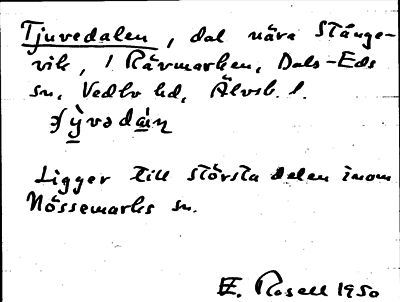 Tjuvedalen, dal nära Stänge-
vik, i Rävmarken, Dals-Eds
sn, Vedbo hd, Älvsb. l.
Ligger till största delen inom
Nössemarks sn.
E. Rosell 1950